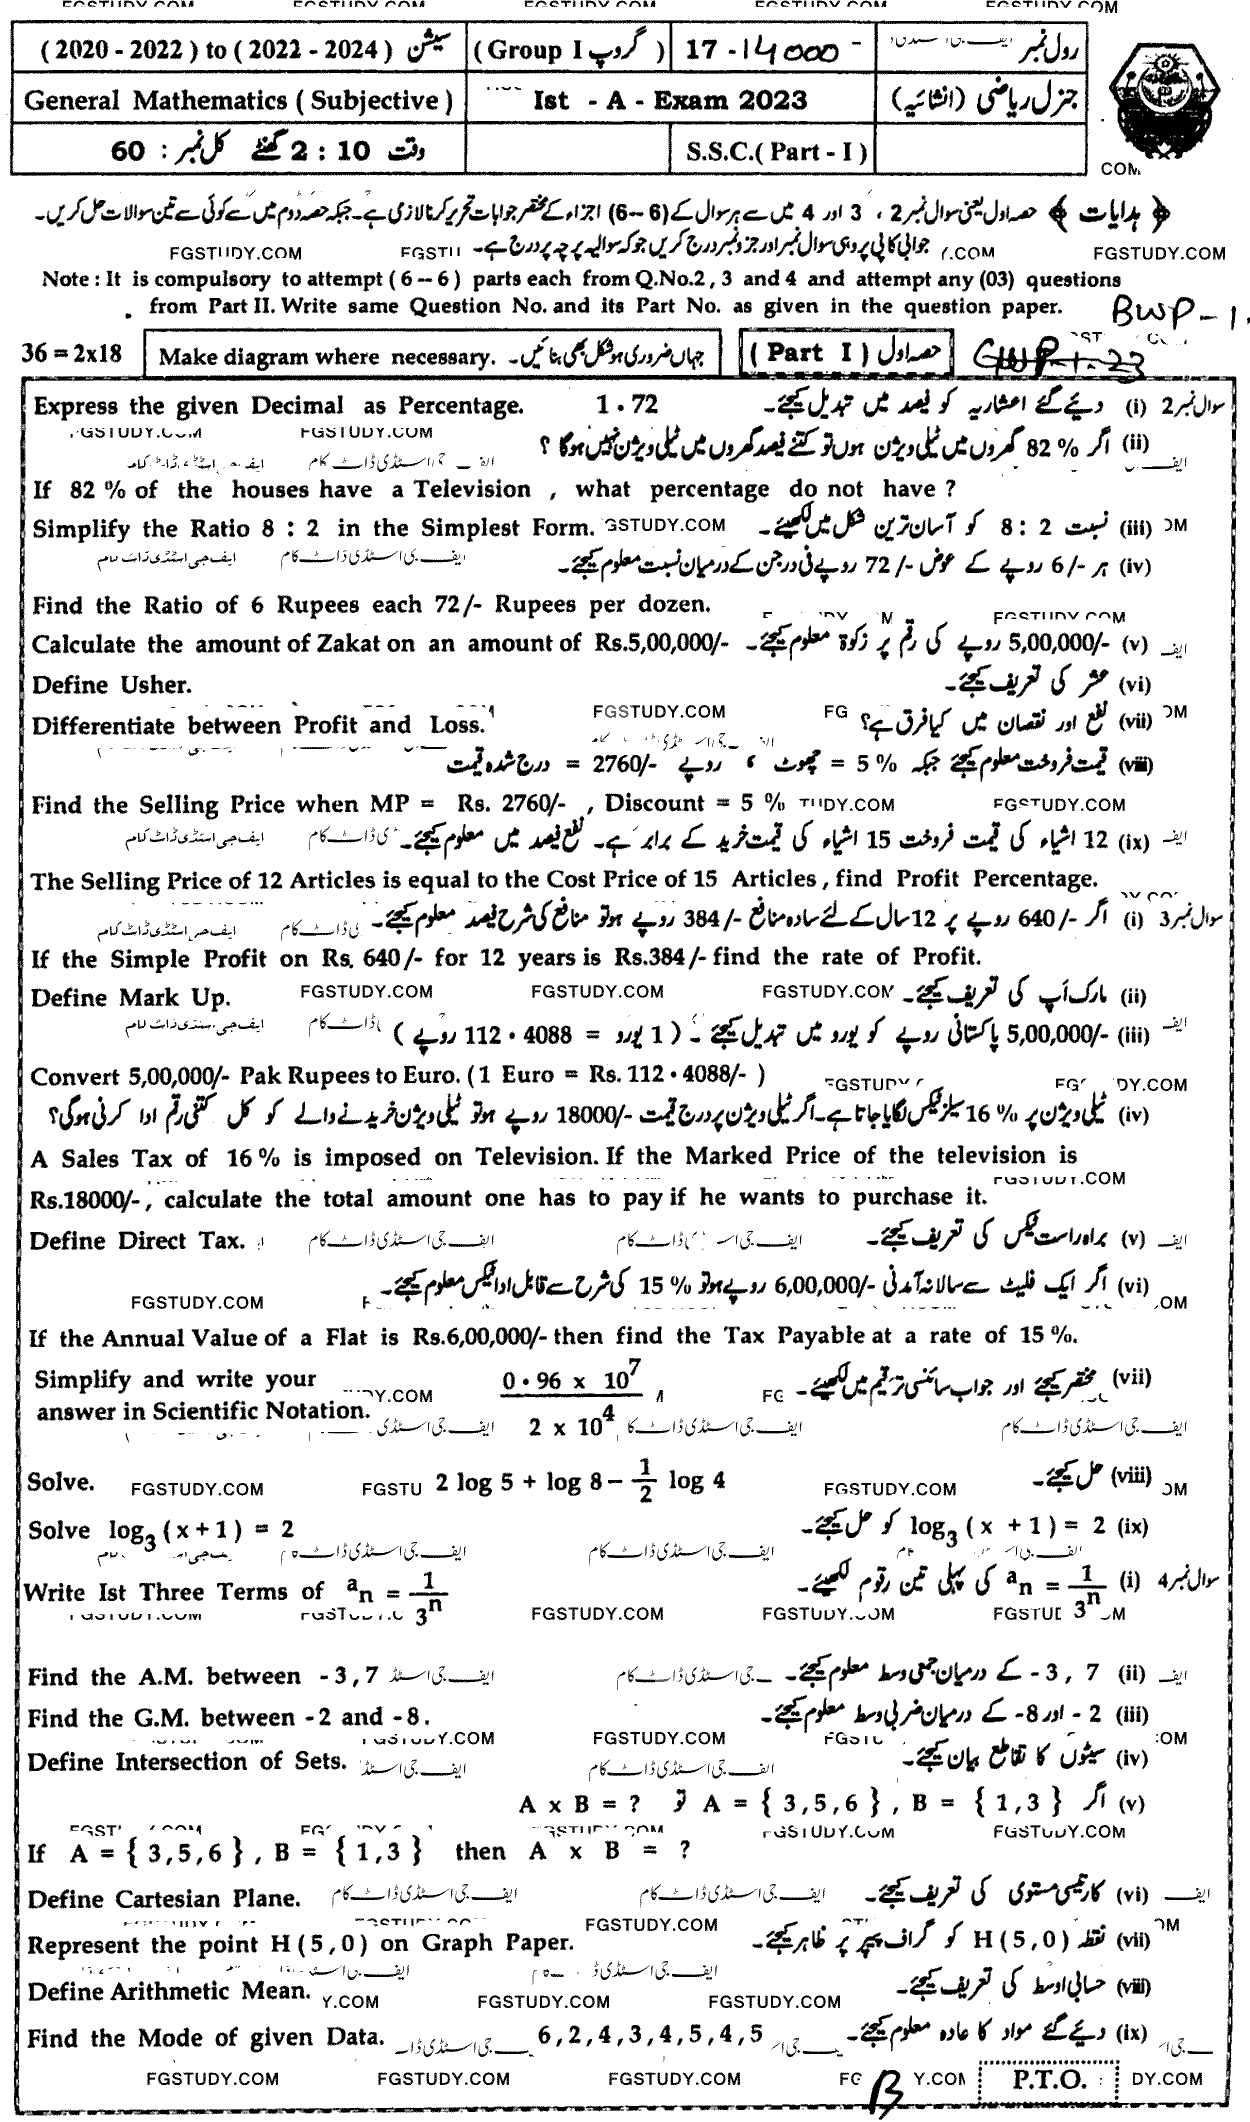 FGSTUDY.COM FGSTUDY.COM FGSTUDY.COM FGSTUDY.COM FGSTUDY.COM
(2020 - 2022) to (2022 - 2024) سیشن (Group I گروپ) 17 -14000- رول نمبر
General Mathematics (Subjective) Ist - A - Exam 2023 جنرل ریاضی (انشائیہ)
وقت 2 : 10 گھنٹے کل نمبر : 60 S.S.C.(Part - I)
﴿ ہدایات ﴾ حصہ اول یعنی سوال نمبر 2 ، 3 اور 4 میں سے ہر سوال کے (6 – 6) اجزاء کے مختصر جوابات تحریر کرنا لازمی ہے۔ جبکہ حصہ دوم میں سے کوئی سے تین سوالات حل کریں۔
جوابی کاپی پر وہی سوال نمبر اور جزو نمبر درج کریں جو کہ سوالیہ پرچہ پر درج ہے۔
Note : It is compulsory to attempt (6 – 6) parts each from Q.No.2, 3 and 4 and attempt any (03) questions
from Part II. Write same Question No. and its Part No. as given in the question paper.
BWP-1.
36 = 2x18 Make diagram where necessary. جہاں ضروری ہو شکل بھی بنائیں۔ (Part I) حصہ اول
Express the given Decimal as Percentage. 1.72 سوال نمبر 2 (i) دیئے گئے اعشاریہ کو فیصد میں تبدیل کیجئے۔
(ii) اگر 82 % گھروں میں ٹیلی ویژن ہوں تو کتنے فیصد گھروں میں ٹیلی ویژن نہیں ہو گا ؟
If 82 % of the houses have a Television , what percentage do not have ?
Simplify the Ratio 8 : 2 in the Simplest Form. (iii) نسبت 2 : 8 کو آسان ترین شکل میں لکھیئے۔
(iv) ہر -/6 روپے کے عوض -/72 روپے فی درجن کے درمیان نسبت معلوم کیجئے۔
Find the Ratio of 6 Rupees each 72/- Rupees per dozen.
Calculate the amount of Zakat on an amount of Rs.5,00,000/- (v) -/5,00,000 روپے کی رقم پر زکوٰۃ معلوم کیجئے۔
Define Usher. (vi) عشر کی تعریف کیجئے۔
Differentiate between Profit and Loss. (vii) نفع اور نقصان میں کیا فرق ہے؟
(viii) قیمت فروخت معلوم کیجئے جبکہ 5 % = چھوٹ ، روپے -/2760 = درج شدہ قیمت
Find the Selling Price when MP = Rs. 2760/- , Discount = 5 %
(ix) 12 اشیاء کی قیمت فروخت 15 اشیاء کی قیمت خرید کے برابر ہے۔ نفع فیصد میں معلوم کیجئے۔
The Selling Price of 12 Articles is equal to the Cost Price of 15 Articles, find Profit Percentage.
سوال نمبر 3 (i) اگر -/640 روپے پر 12 سال کے لئے سادہ منافع -/384 روپے ہو تو منافع کی شرح فیصد معلوم کیجئے۔
If the Simple Profit on Rs. 640/- for 12 years is Rs.384/- find the rate of Profit.
Define Mark Up. (ii) مارک اَپ کی تعریف کیجئے۔
(iii) -/5,00,000 پاکستانی روپے کو یورو میں تبدیل کیجئے ۔ ( 1 یورو = 112.4088 روپے )
Convert 5,00,000/- Pak Rupees to Euro. (1 Euro = Rs. 112.4088/- )
(iv) ٹیلی ویژن پر 16 % سیلز ٹیکس لگایا جاتا ہے۔ اگر ٹیلی ویژن پر درج قیمت -/18000 روپے ہو تو ٹیلی ویژن خریدنے والے کو کل کتنی رقم ادا کرنی ہوگی؟
A Sales Tax of 16 % is imposed on Television. If the Marked Price of the television is
Rs.18000/-, calculate the total amount one has to pay if he wants to purchase it.
Define Direct Tax. (v) براہ راست ٹیکس کی تعریف کیجئے۔
(vi) اگر ایک فلیٹ سے سالانہ آمدنی -/6,00,000 روپے ہو تو 15 % کی شرح سے قابل ادا ٹیکس معلوم کیجئے۔
If the Annual Value of a Flat is Rs.6,00,000/- then find the Tax Payable at a rate of 15 %.
Simplify and write your answer in Scientific Notation. 0.96 x 10⁷ / 2 x 10⁴ (vii) مختصر کیجئے اور جواب سائنسی ترقیم میں لکھیئے۔
Solve. 2 log 5 + log 8 – 1/2 log 4 (viii) حل کیجئے۔
Solve log₃(x+1) = 2 (ix) log₃(x + 1) = 2 کو حل کیجئے۔
Write Ist Three Terms of aₙ = 1/3ⁿ سوال نمبر 4 (i) aₙ = 1/3ⁿ کی پہلی تین رقوم لکھیئے۔
Find the A.M. between -3, 7 (ii) -3 , 7 کے درمیان جمعی وسط معلوم کیجئے۔
Find the G.M. between -2 and -8. (iii) -2 اور -8 کے درمیان ضربی وسط معلوم کیجئے۔
Define Intersection of Sets. (iv) سیٹوں کا تقاطع بیان کیجئے۔
(v) اگر A = { 3,5,6 } , B = { 1,3 } تو A x B = ?
If A = { 3,5,6 } , B = { 1,3 } then A x B = ?
Define Cartesian Plane. (vi) کارتیسی مستوی کی تعریف کیجئے۔
Represent the point H(5,0) on Graph Paper. (vii) نقطہ H(5,0) کو گراف پیپر پر ظاہر کیجئے۔
Define Arithmetic Mean. (viii) حسابی اوسط کی تعریف کیجئے۔
Find the Mode of given Data. 6,2,4,3,4,5,4,5 (ix) دیئے گئے مواد کا عادہ معلوم کیجئے۔
FGSTUDY.COM FGSTUDY.COM FGSTUDY.COM P.T.O.